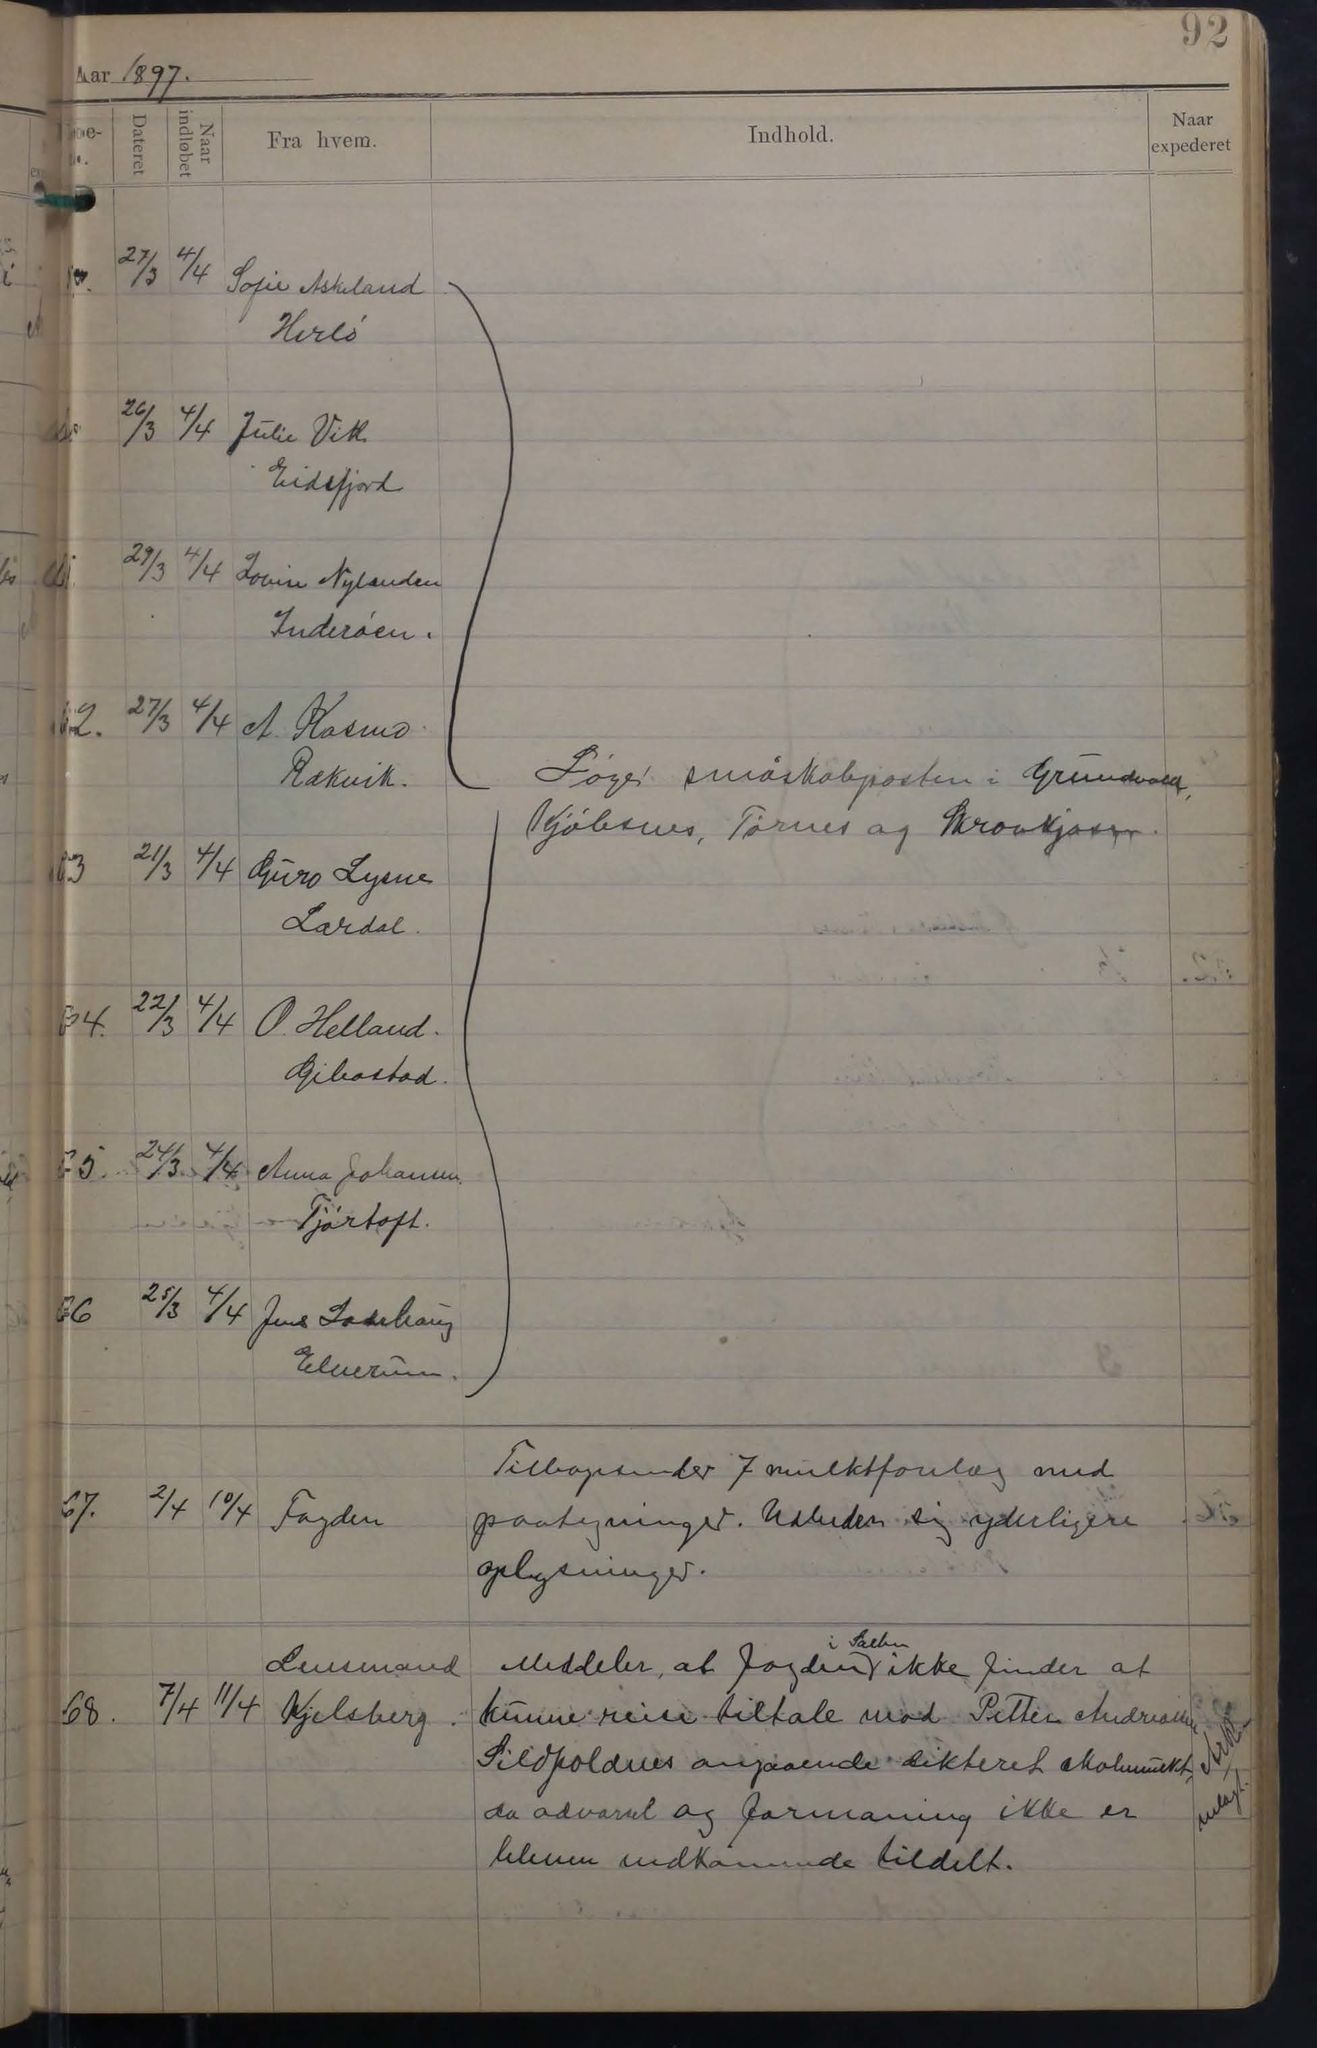 92
Aar 1897.
Dateret
Naar indløbet
Fra hvem.
Indhold.
Naar expederet
27/3 4/4 Sofie Askeland
Herlö
26/3 4/4 Julie Vik
Eidsfjord
29/3 4/4 Lovise Nylanden
Inderöen.
62. 27/3 4/4 A. Kosmo
Rækvik. Söger småskoleposten i Grundvald,
Kjöbsnes, Törnes og Skrovkjosen.
63 21/3 4/4 Guro Lysne
Lærdal.
64. 22/3 4/4 O. Helland.
Gibostad.
65. 24/3 4/4 Anna Johansen
Tjörtoft.
66 25/3 4/4 Jens
Elverum.
Tilbagesender 7 mulktforelæg med
67. 2/4 10/4 Fogden paategninger. Udbeder sig yderligere
oplysninger.
i Salten
Lensmand Meddeler, at fogden ikke finder at
68. 7/4 11/4 Kjelsberg. kunne reise tiltale mod Petter Andreassen
Sildpoldnes angaaende dikteret skolemulkt,
da advarsel og formaning ikke er
bleven vedkommende tildelt.